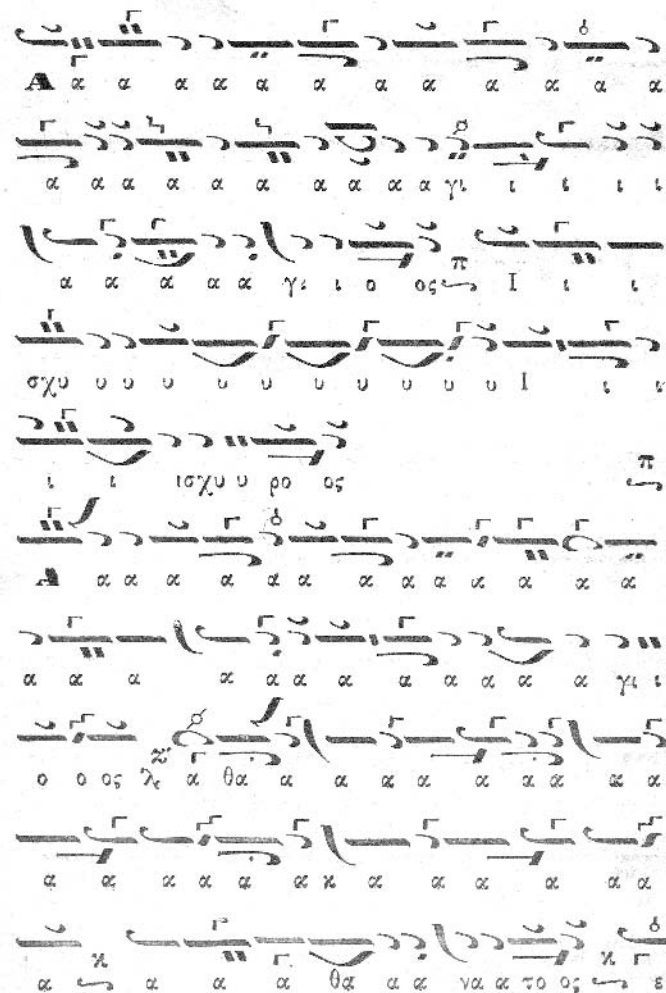 Α α α α α α α α α α α α α
α α α α α α α α α α γι ι ι ι ι
α α α α α γι ι ο ος π Ι ι ι
σχυ υ υ υ υ υ υ υ υ υ υ Ι ι ι
ι ι ισχυ υ ρο ος π
Α α α α α α α α α α α α α α
α α α α α α α α α α α γι ι
ο ο ος λε α θα α α α α α α α α α
α α α α α α κ α α α α α α
α κ α α α θα α α να α το ος κ ε